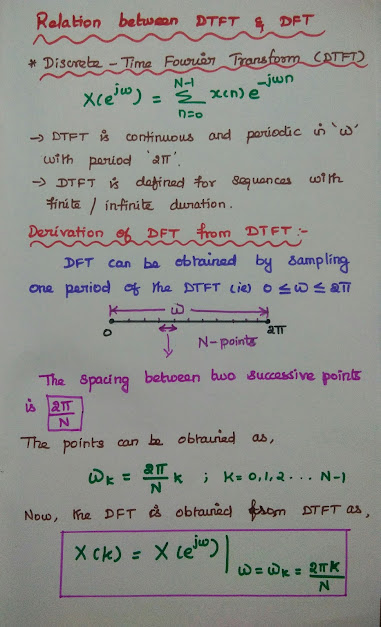 Relation between DTFT & DFT
* Discrete-Time Fourier Transform (DTFT)
X(e^{jω}) = \sum_{n=0}^{N-1} x(n) e^{-jωn}
→ DTFT is continuous and periodic in 'ω'
with period '2π'.
→ DTFT is defined for sequences with
finite / infinite duration.
Derivation of DFT from DTFT :-
DFT can be obtained by sampling
one period of the DTFT (ie) 0 ≤ ω ≤ 2π
ω
0 2π
N-points
The spacing between two successive points
is 2π/N
The points can be obtained as,
ω_k = 2π/N k ; k = 0,1,2 ... N-1
Now, the DFT is obtained from DTFT as,
X(k) = X(e^{jω}) | ω = ω_k = 2πk/N